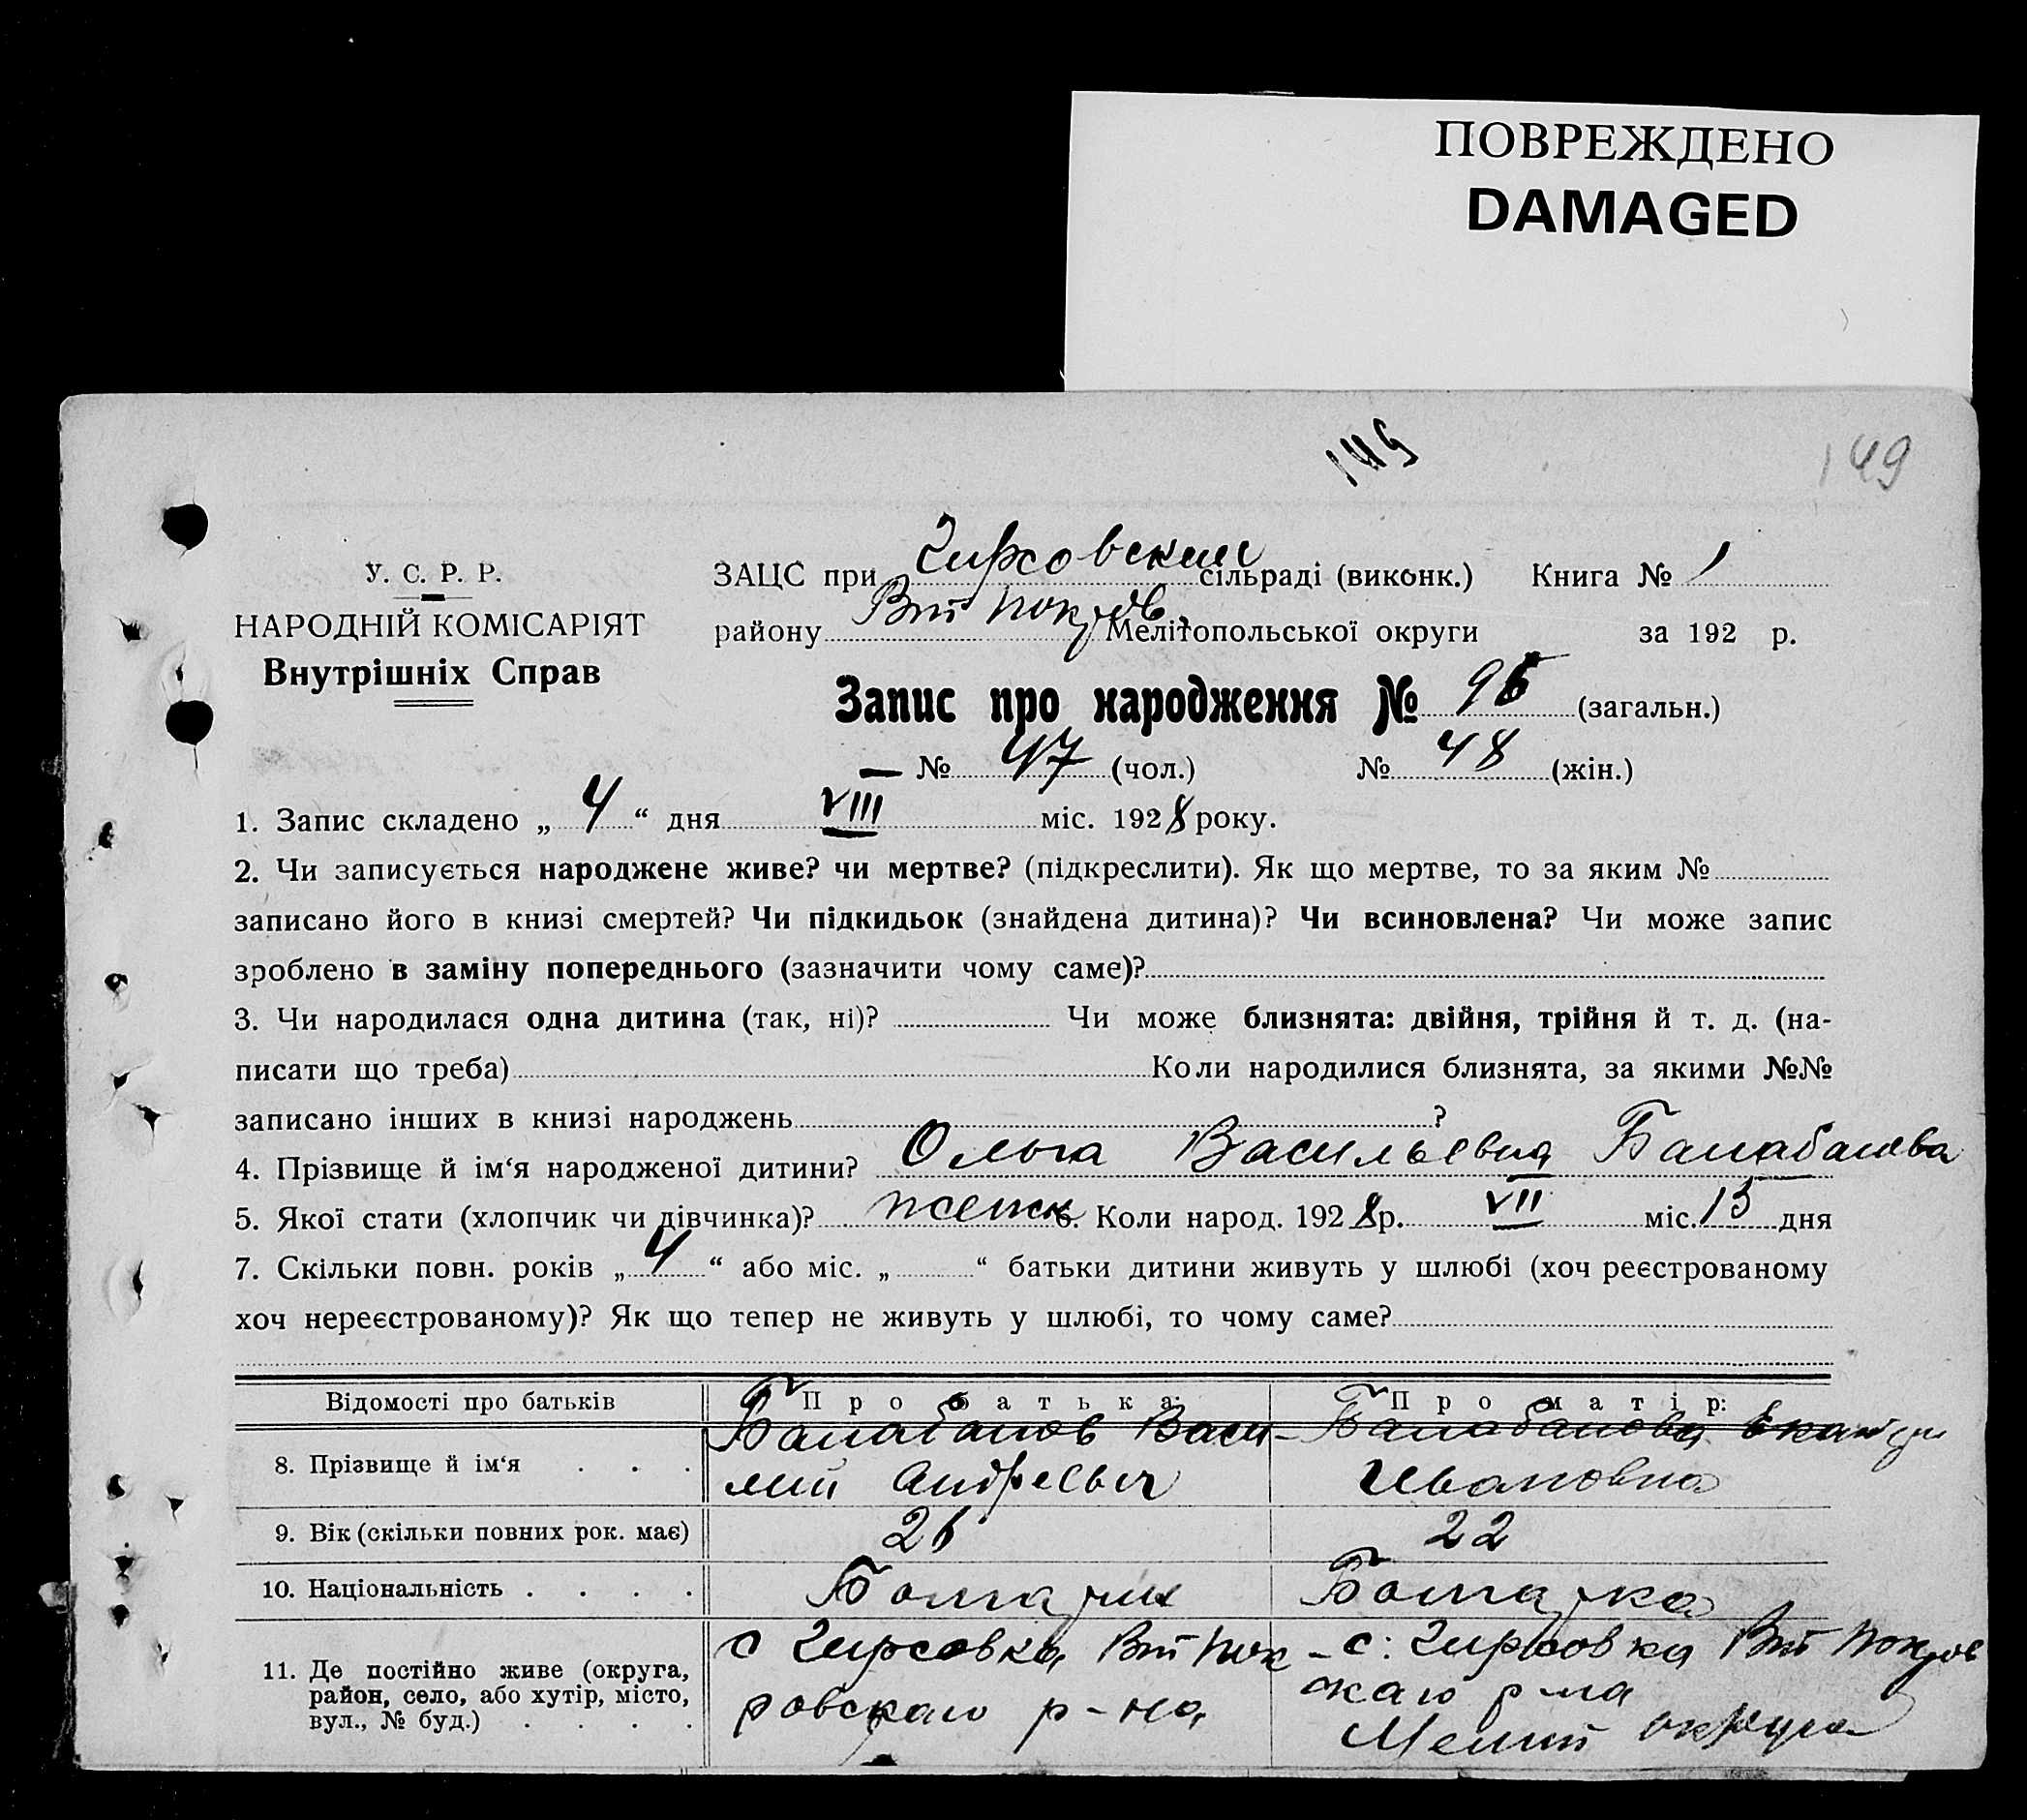 ПОВРЕЖДЕНО
DAMAGED
149
149
У. С. Р. Р.
НАРОДНІЙ КОМІСАРІЯТ
Внутрішніх Справ
ЗАЦС при Гирсовским сільраді (виконк.) Книга № 1
району Вт Покров. Мелітопольської округи за 192 р.
Запис про народження № 95 (загальн.)
— № 47 (чол.) № 48 (жін.)
1. Запис складено „ 4 “ дня VIII міс. 1928 року.
2. Чи записується народжене живе? чи мертве? (підкреслити). Як що мертве, то за яким №
записано його в книзі смертей? Чи підкидьок (знайдена дитина)? Чи всиновлена? Чи може запис
зроблено в заміну попереднього (зазначити чому саме)?
3. Чи народилася одна дитина (так, ні)? Чи може близнята: двійня, трійня й т. д. (на-
писати що треба) Коли народилися близнята, за якими №№
записано інших в книзі народжень ?
4. Прізвище й ім‘я народженої дитини? Ольга Васильевна Балабанова
5. Якої стати (хлопчик чи дівчинка)? женск 6. Коли народ. 1928 р. VII міс. 15 дня
7. Скільки повн. років „ 4 “ або міс. „ “ батьки дитини живуть у шлюбі (хоч реєстрованому
хоч нереєстрованому)? Як що тепер не живуть у шлюбі, то чому саме?
Відомості про батьків Про батька: Про матір:
8. Прізвище й ім‘я . . . Балабанов Васи- Балабанова Екатери
лий Андреевич Ивановна
9. Вік (скільки повних рок. має) 26 22
10. Національність . . . . Болгарин Болгарка
11. Де постійно живе (округа, район, село, або хутір, місто, вул., № буд.) . . . . с Гирсовка Вт Пок- с. Гирсовка Вт Покров
ровскаго р-на скаго р-на
Мелит округа